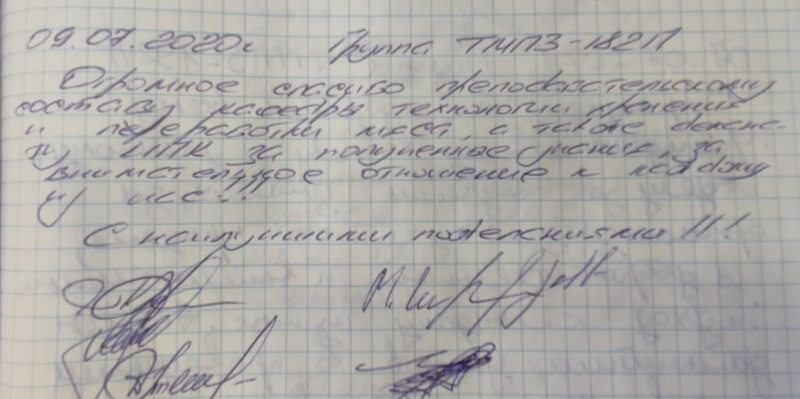 09.07.2020г Группа ТМПЗ-182П
Огромное спасибо преподавательскому
составу кафедры технологии хранения
и переработки мяса, а также декана-
ту ИПК за полученные знания, за
внимательное отношение к каждому
из нас!!!
С наилучшими пожеланиями !!!